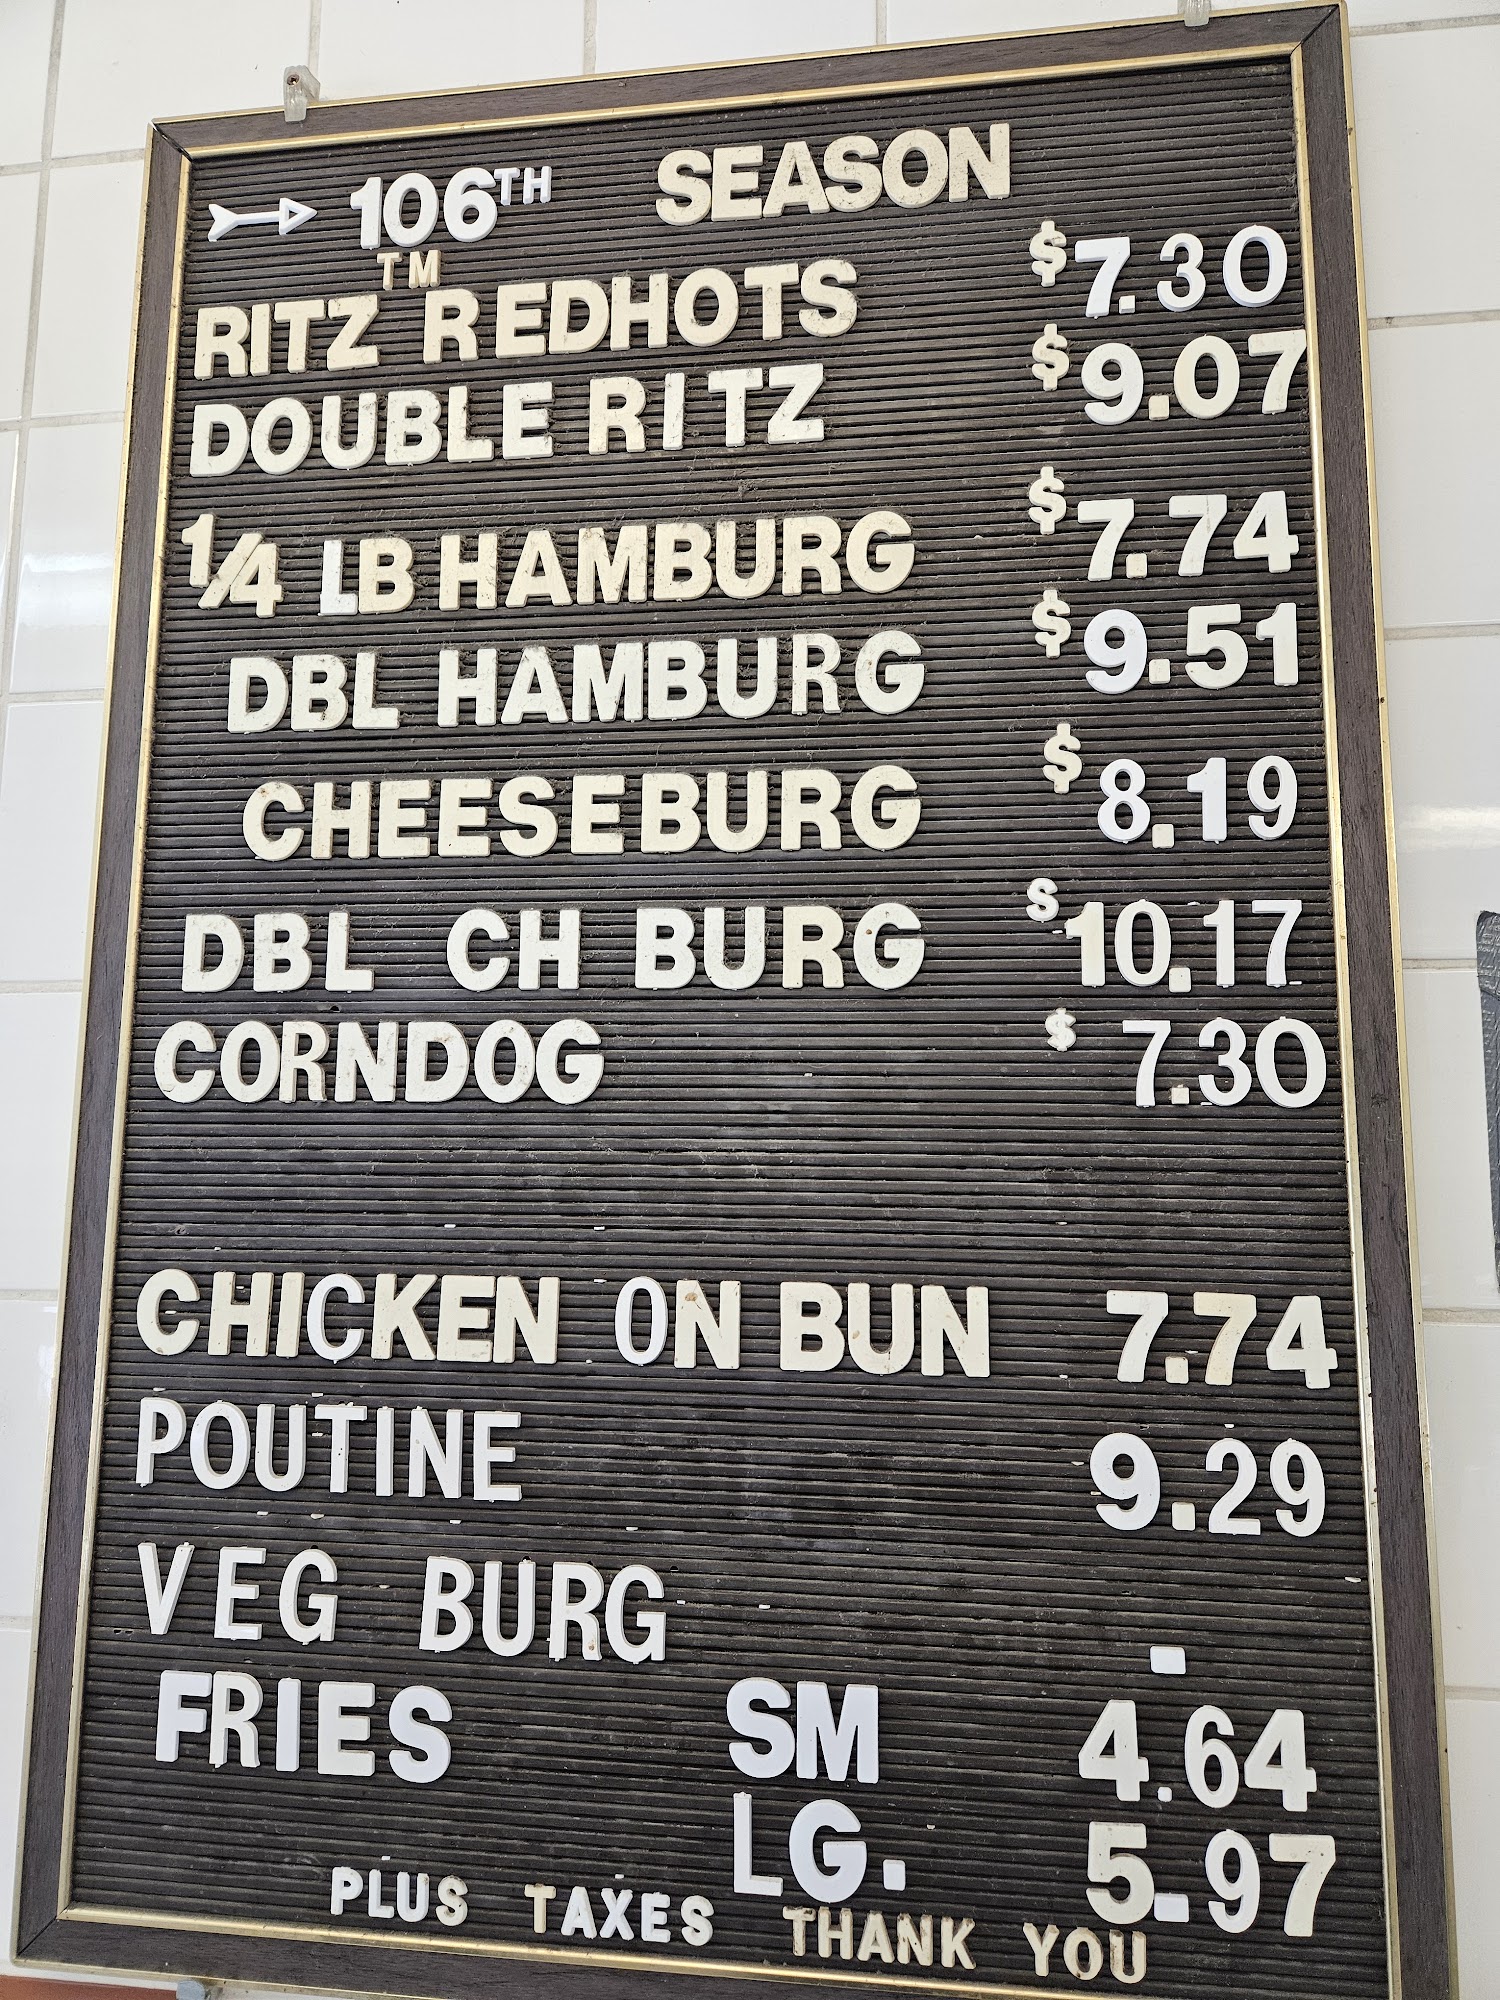 106TH SEASON
RITZ™ REDHOTS $7.30
DOUBLE RITZ $9.07
1/4 LB HAMBURG $7.74
DBL HAMBURG $9.51
CHEESEBURG $8.19
DBL CH BURG $10.17
CORNDOG $7.30
CHICKEN ON BUN 7.74
POUTINE 9.29
VEG BURG .
FRIES SM 4.64
LG. 5.97
PLUS TAXES THANK YOU